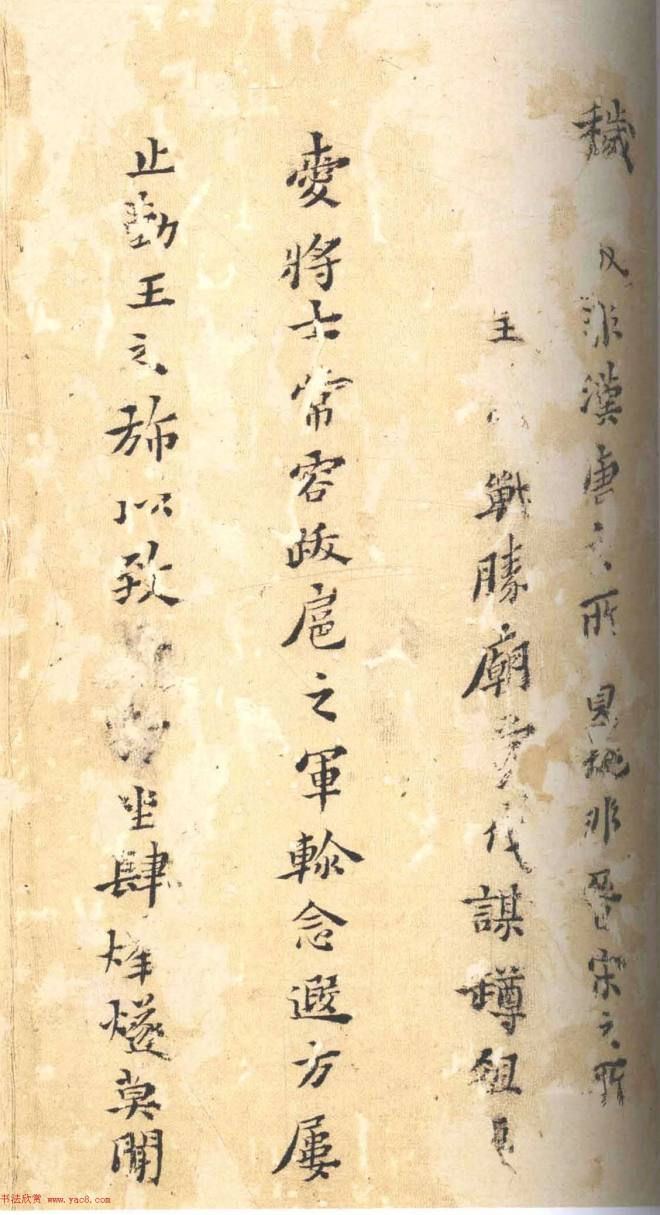 穢 及 非漢唐之所 見 非晉宋之所
王 戰勝廟堂伐謀樽俎
愛將士常容跋扈之軍軫念遐方屢
止勤王之旆以致 坐肆烽燧莫聞
书法欣赏 www.yac8.com